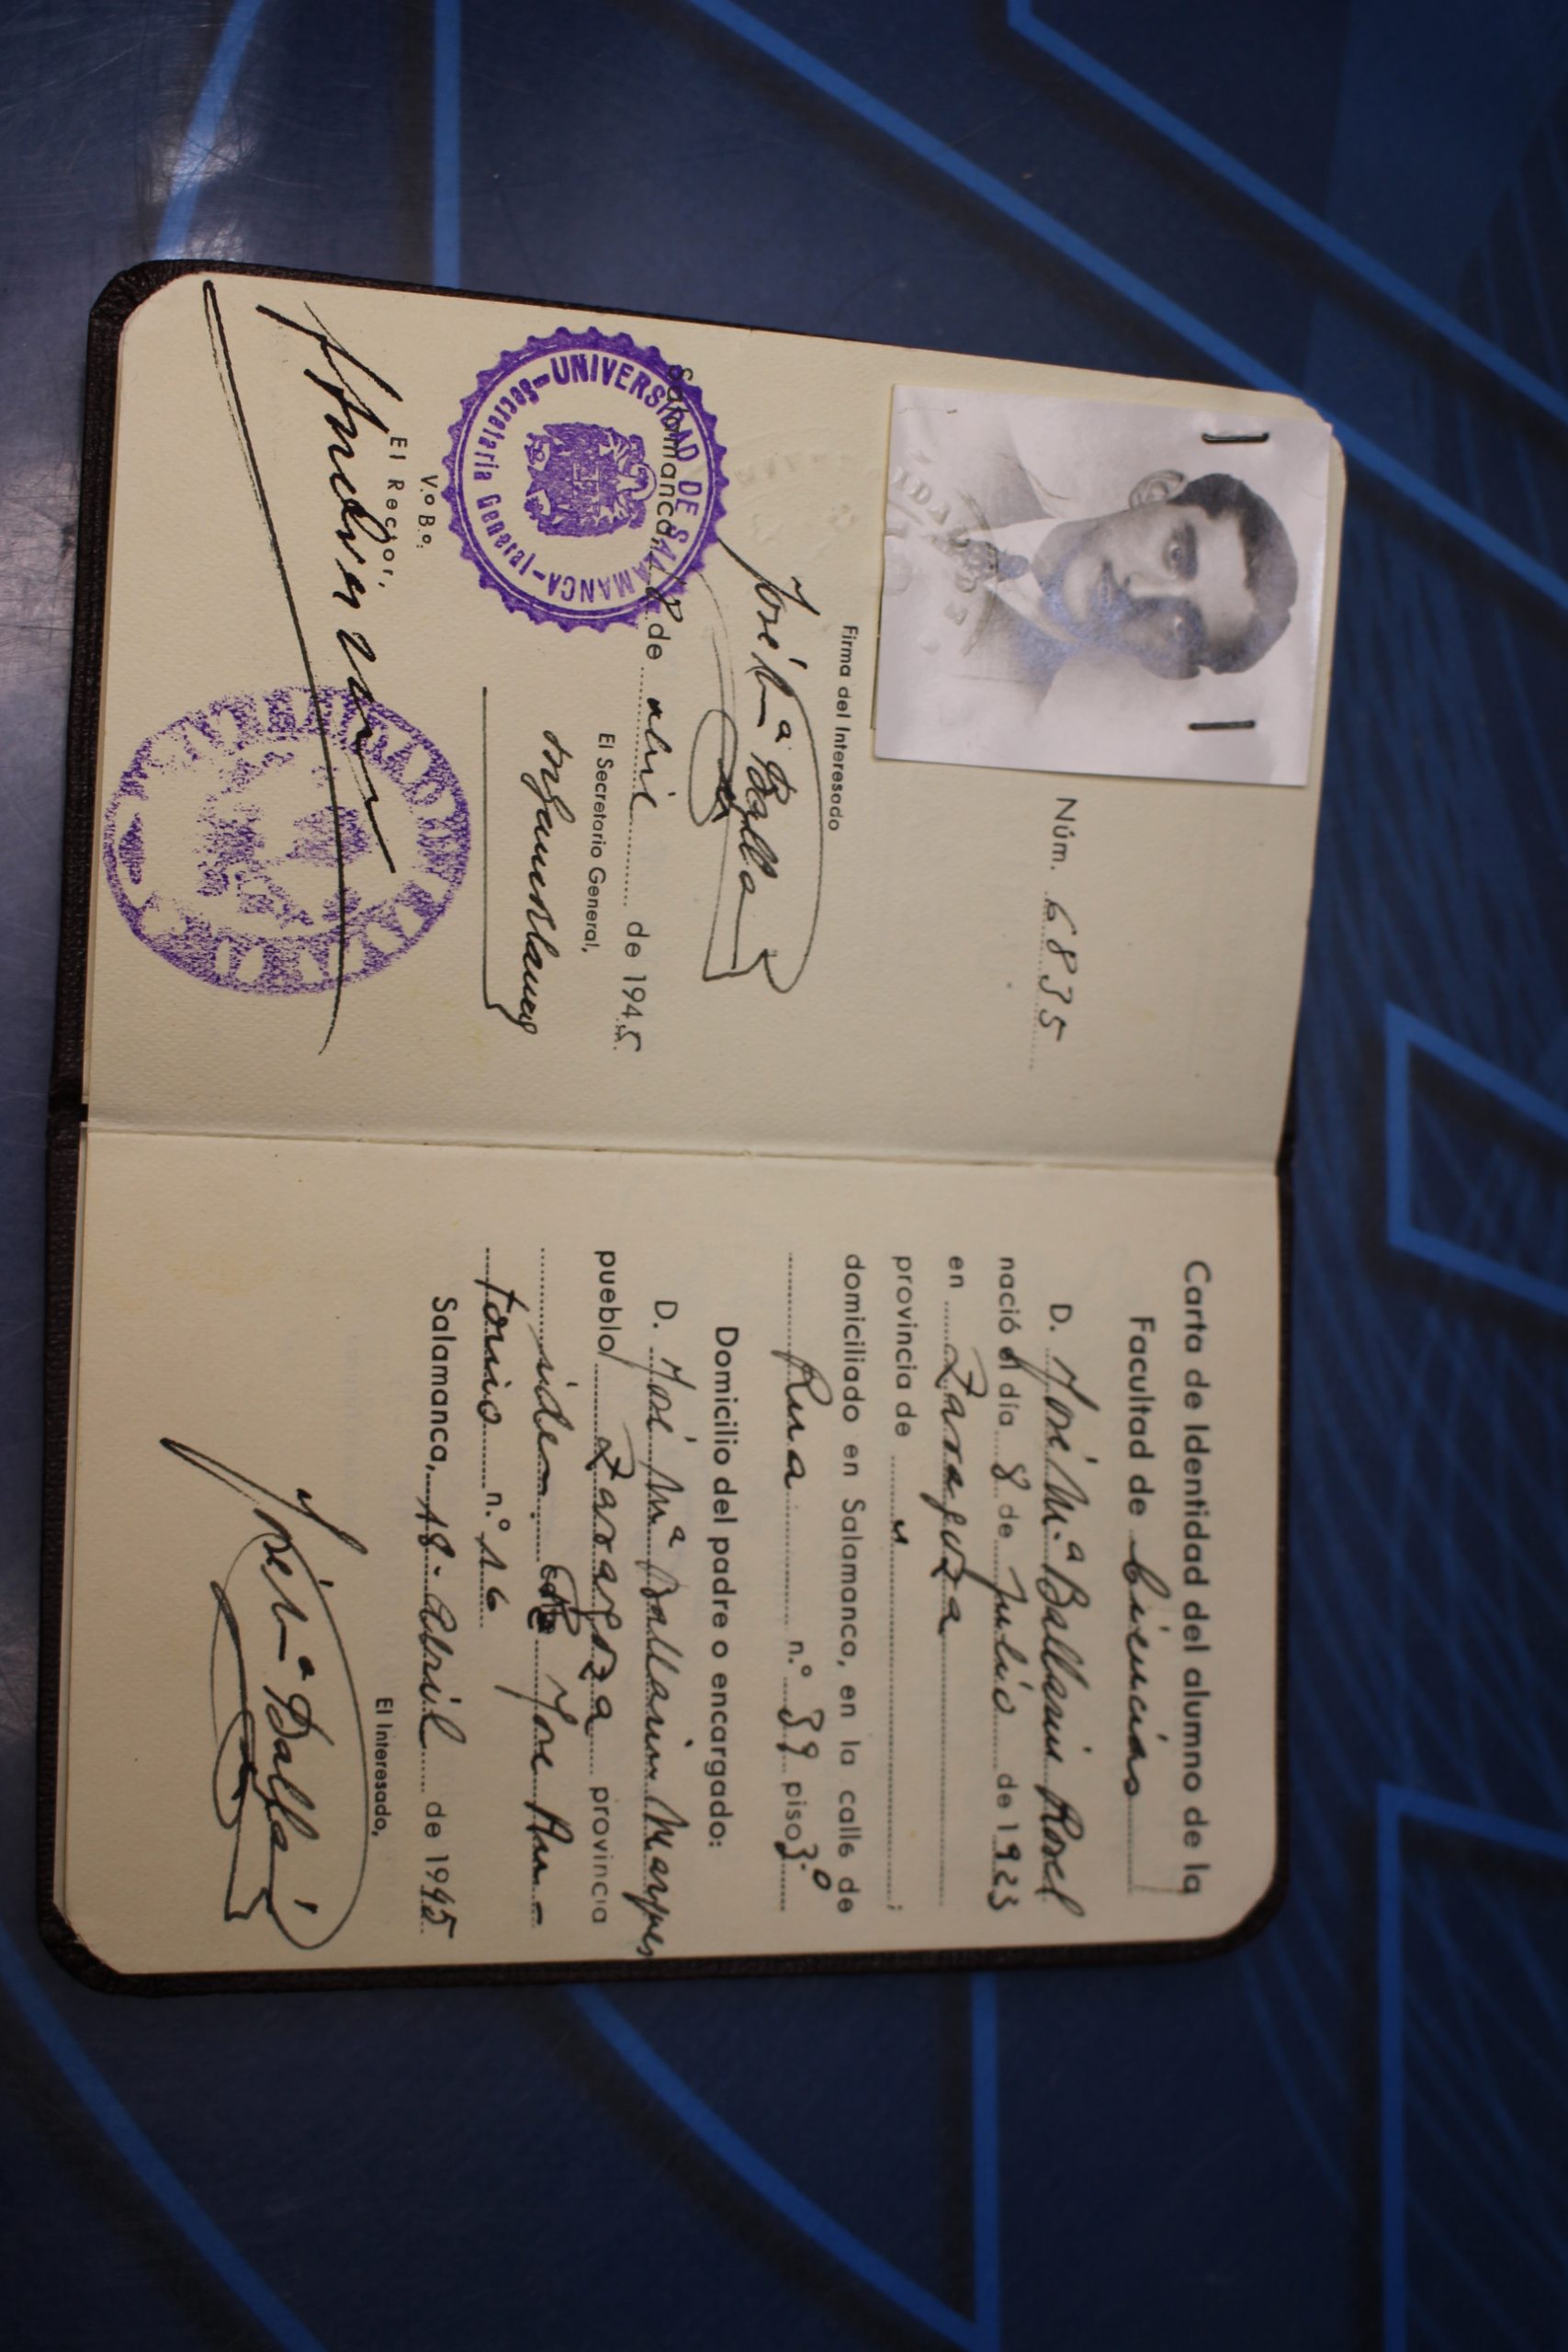 Núm. 6835
Firma del Interesado
José M.ª Balla
UNIVERSIDAD DE SALAMANCA
Secretaria General
Salamanca, 18 de abril de 1945.
El Secretario General,
V.º B.º:
El Rector,
Carta de Identidad del alumno de la
Facultad de Ciencias
D. José M.ª Ballarin Rosel
nació el día 8 de Julio de 1923
en Zaragoza
provincia de ;
domiciliado en Salamanca, en la calle de
Rua n.º 39 piso 3.º
Domicilio del padre o encargado:
D. José Mª Ballarin
pueblo Zaragoza provincia
idem
n.º 16
Salamanca, 18 - Abril de 1945.
El Interesado,
José M.ª Balla